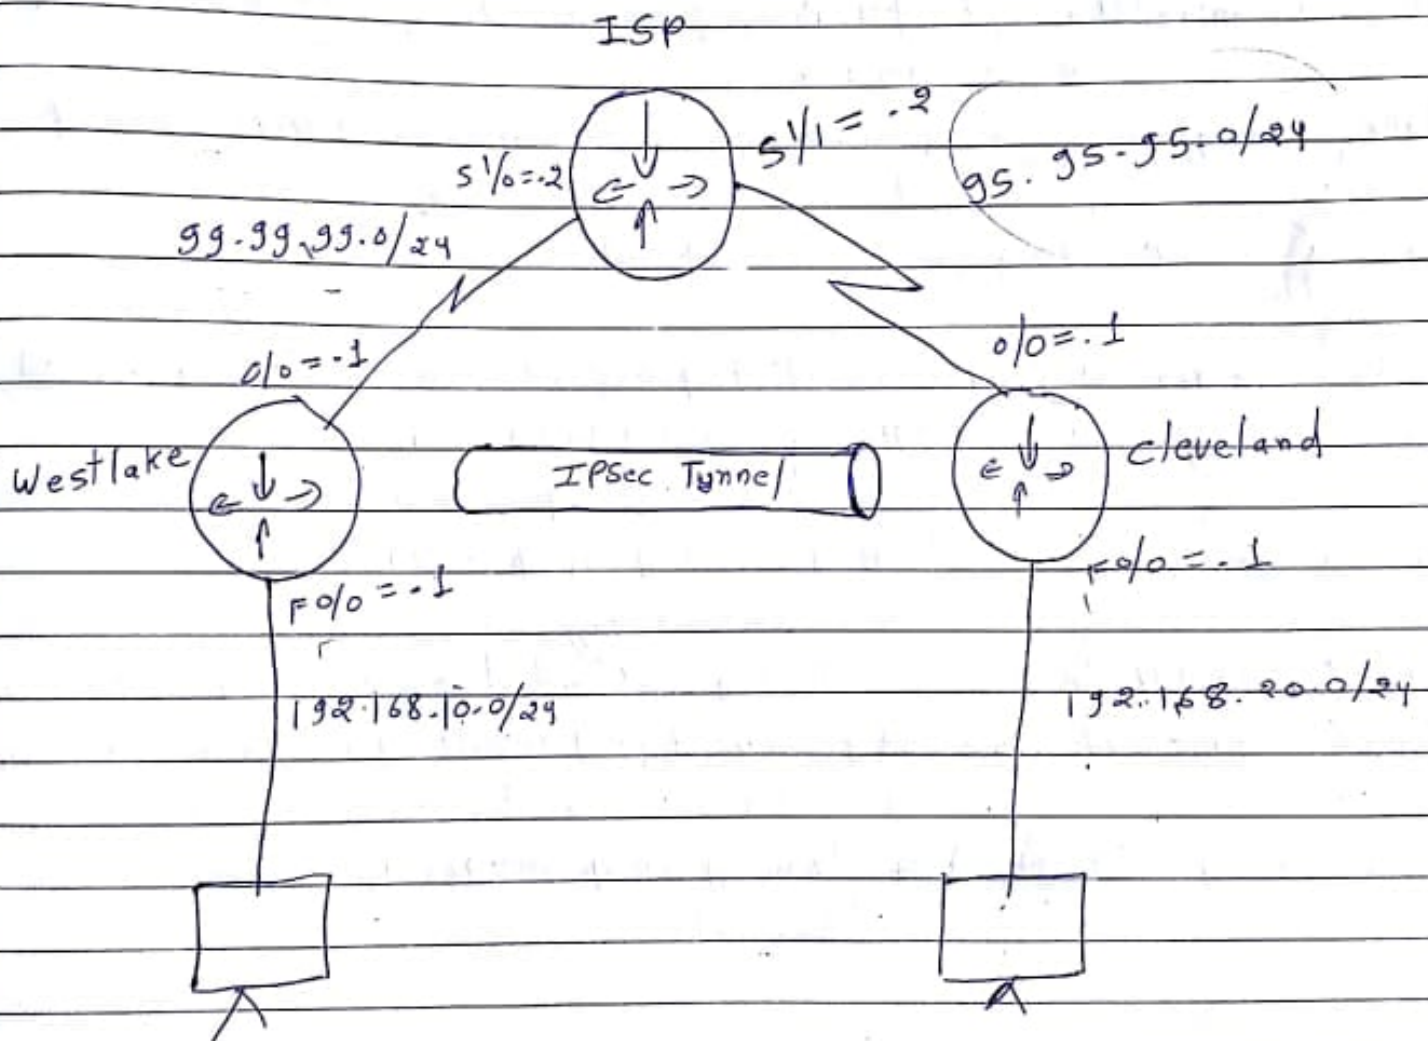 ISP
S1/1 = .2
95.95.95.0/24
S1/0=.2
99.99.99.0/24
0/0=.1
0/0 = .1
Westlake
IPSec Tunnel
Cleveland
F0/0 = .1
F0/0 = .1
192.168.10.0/24
192.168.20.0/24